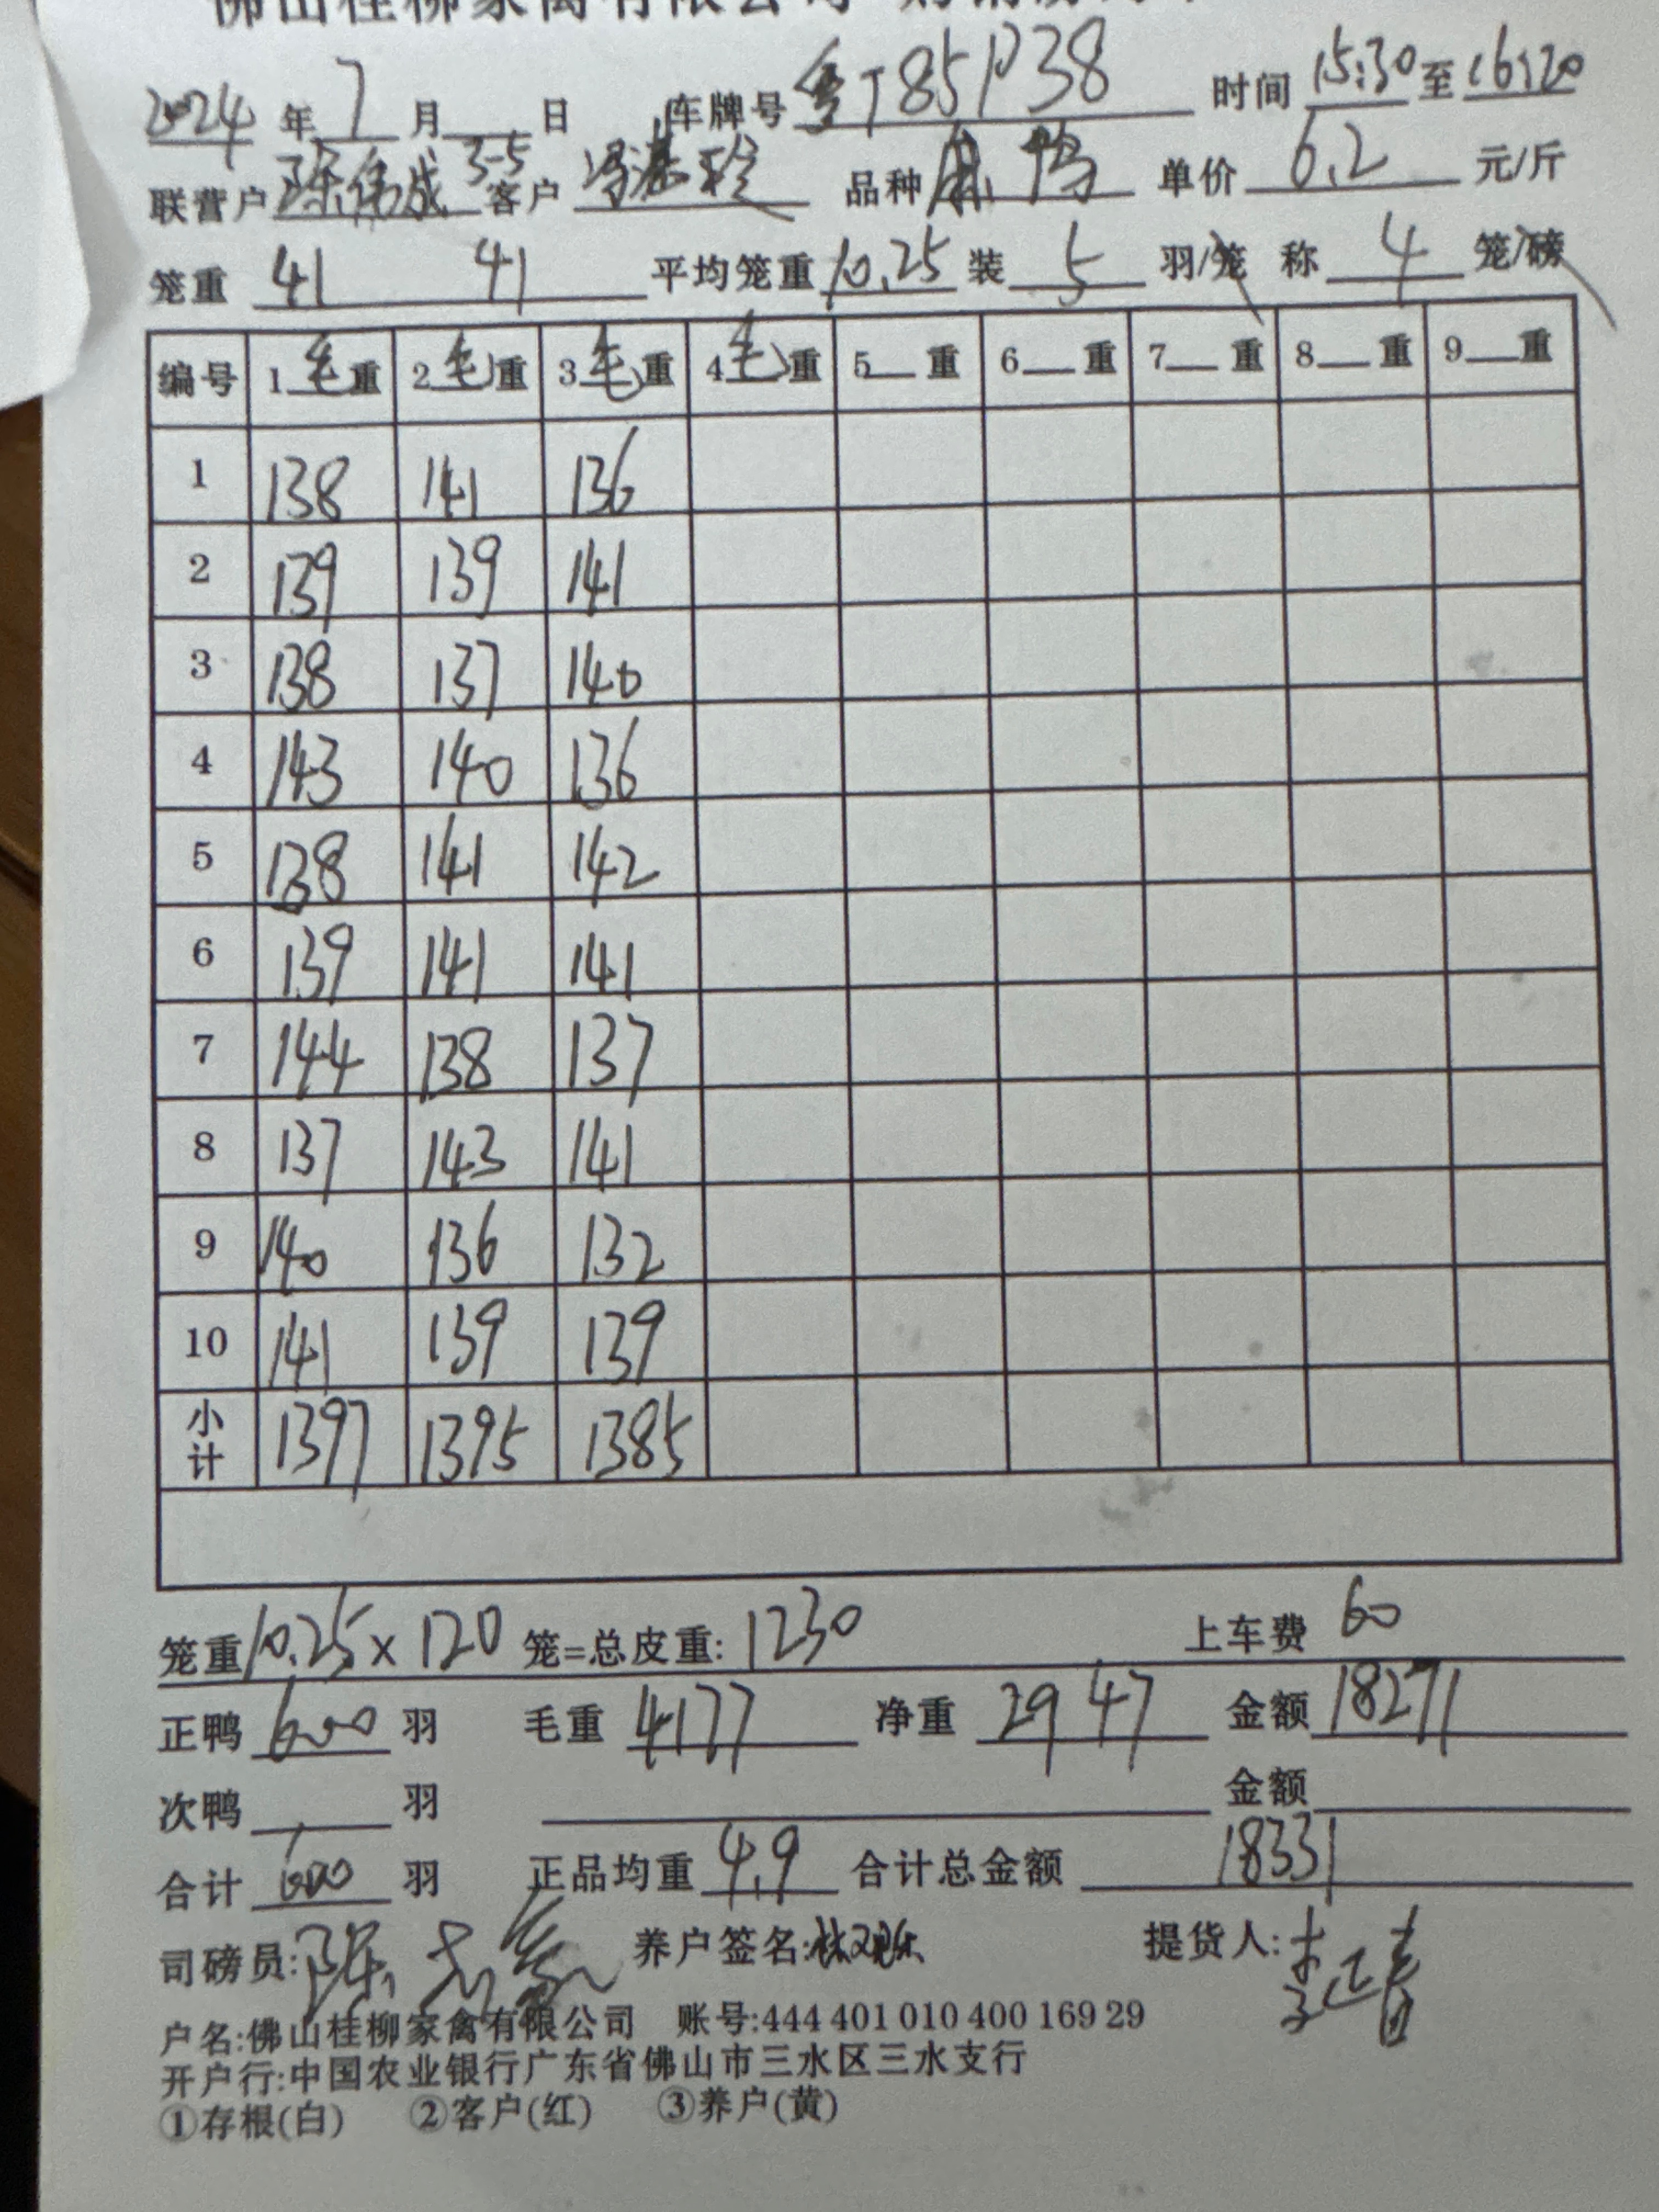 佛山桂柳家禽有限公司
2024 年 7 月 日 车牌号 粤J85P38 时间 15:30 至 16:20
联营户 陈伟成 3-5 客户 品种 麻鸭 单价 6.2 元/斤
笼重 41 41 平均笼重 10.25 装 5 羽/笼 称 4 笼/磅
编号 1 毛 重 2 毛 重 3 毛 重 4 毛 重 5 重 6 重 7 重 8 重 9 重
1 138 141 136
2 139 139 141
3 138 137 140
4 143 140 136
5 138 141 142
6 139 141 141
7 144 138 137
8 137 143 141
9 140 136 132
10 141 139 139
小计 1397 1395 1385
笼重 10.25 × 120 笼=总皮重: 1230 上车费 60
正鸭 600 羽 毛重 4177 净重 2947 金额 18271
次鸭 / 羽 金额
合计 600 羽 正品均重 4.9 合计总金额 18331
司磅员: 养户签名: 提货人:
户名:佛山桂柳家禽有限公司 账号:444 401 010 400 169 29
开户行:中国农业银行广东省佛山市三水区三水支行
①存根(白) ②客户(红) ③养户(黄)